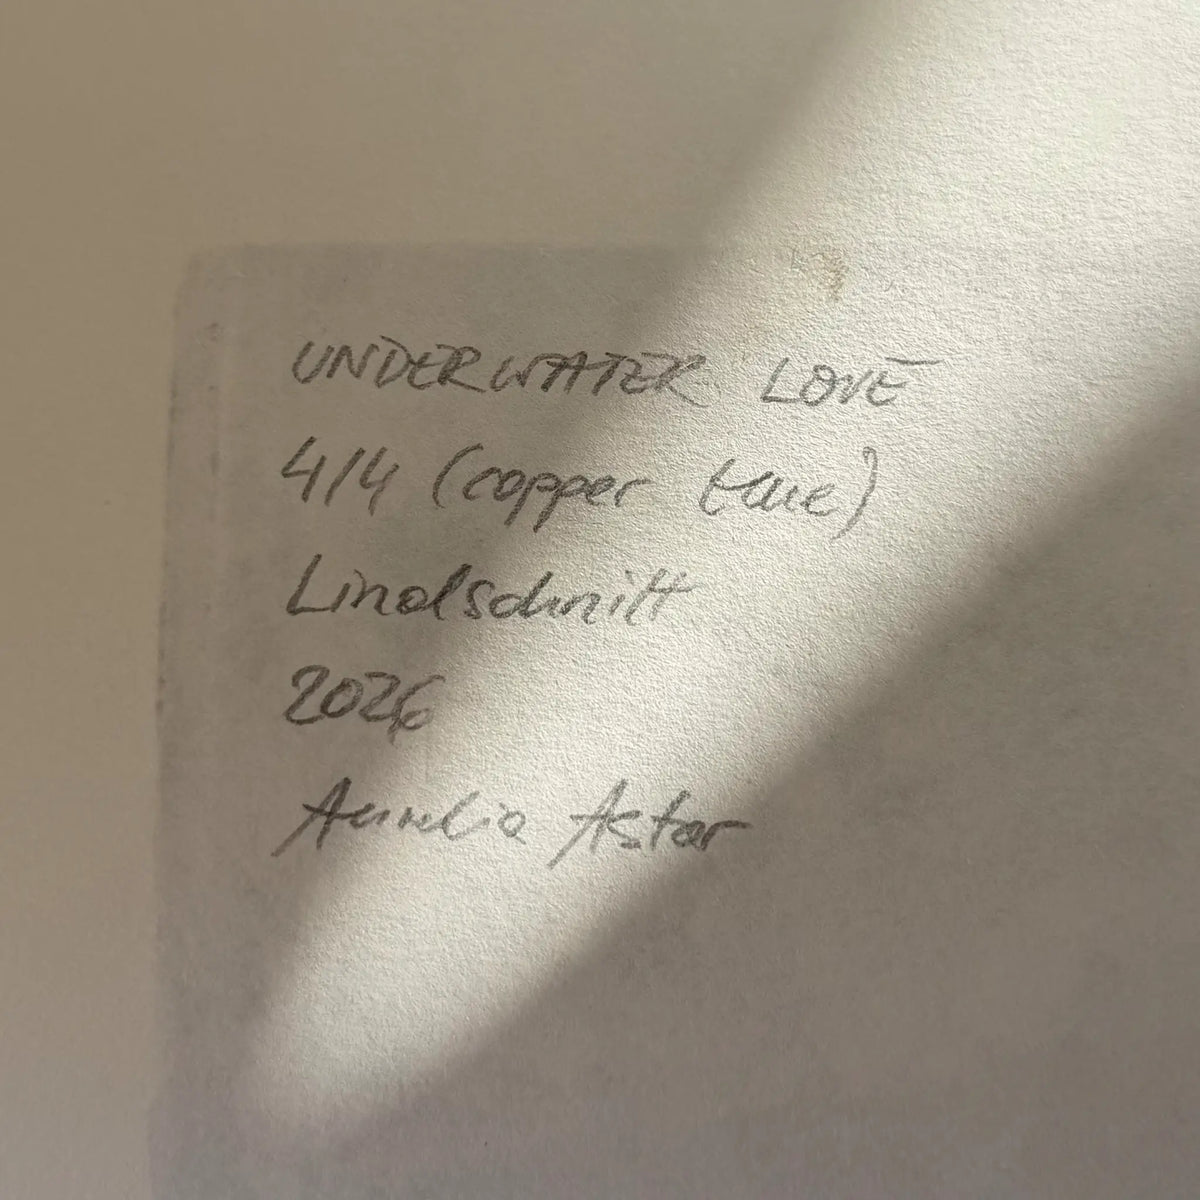 UNDERWATER LOVE
4/4 (copper blue)
Linolschnitt
2026
Aurelia Astor